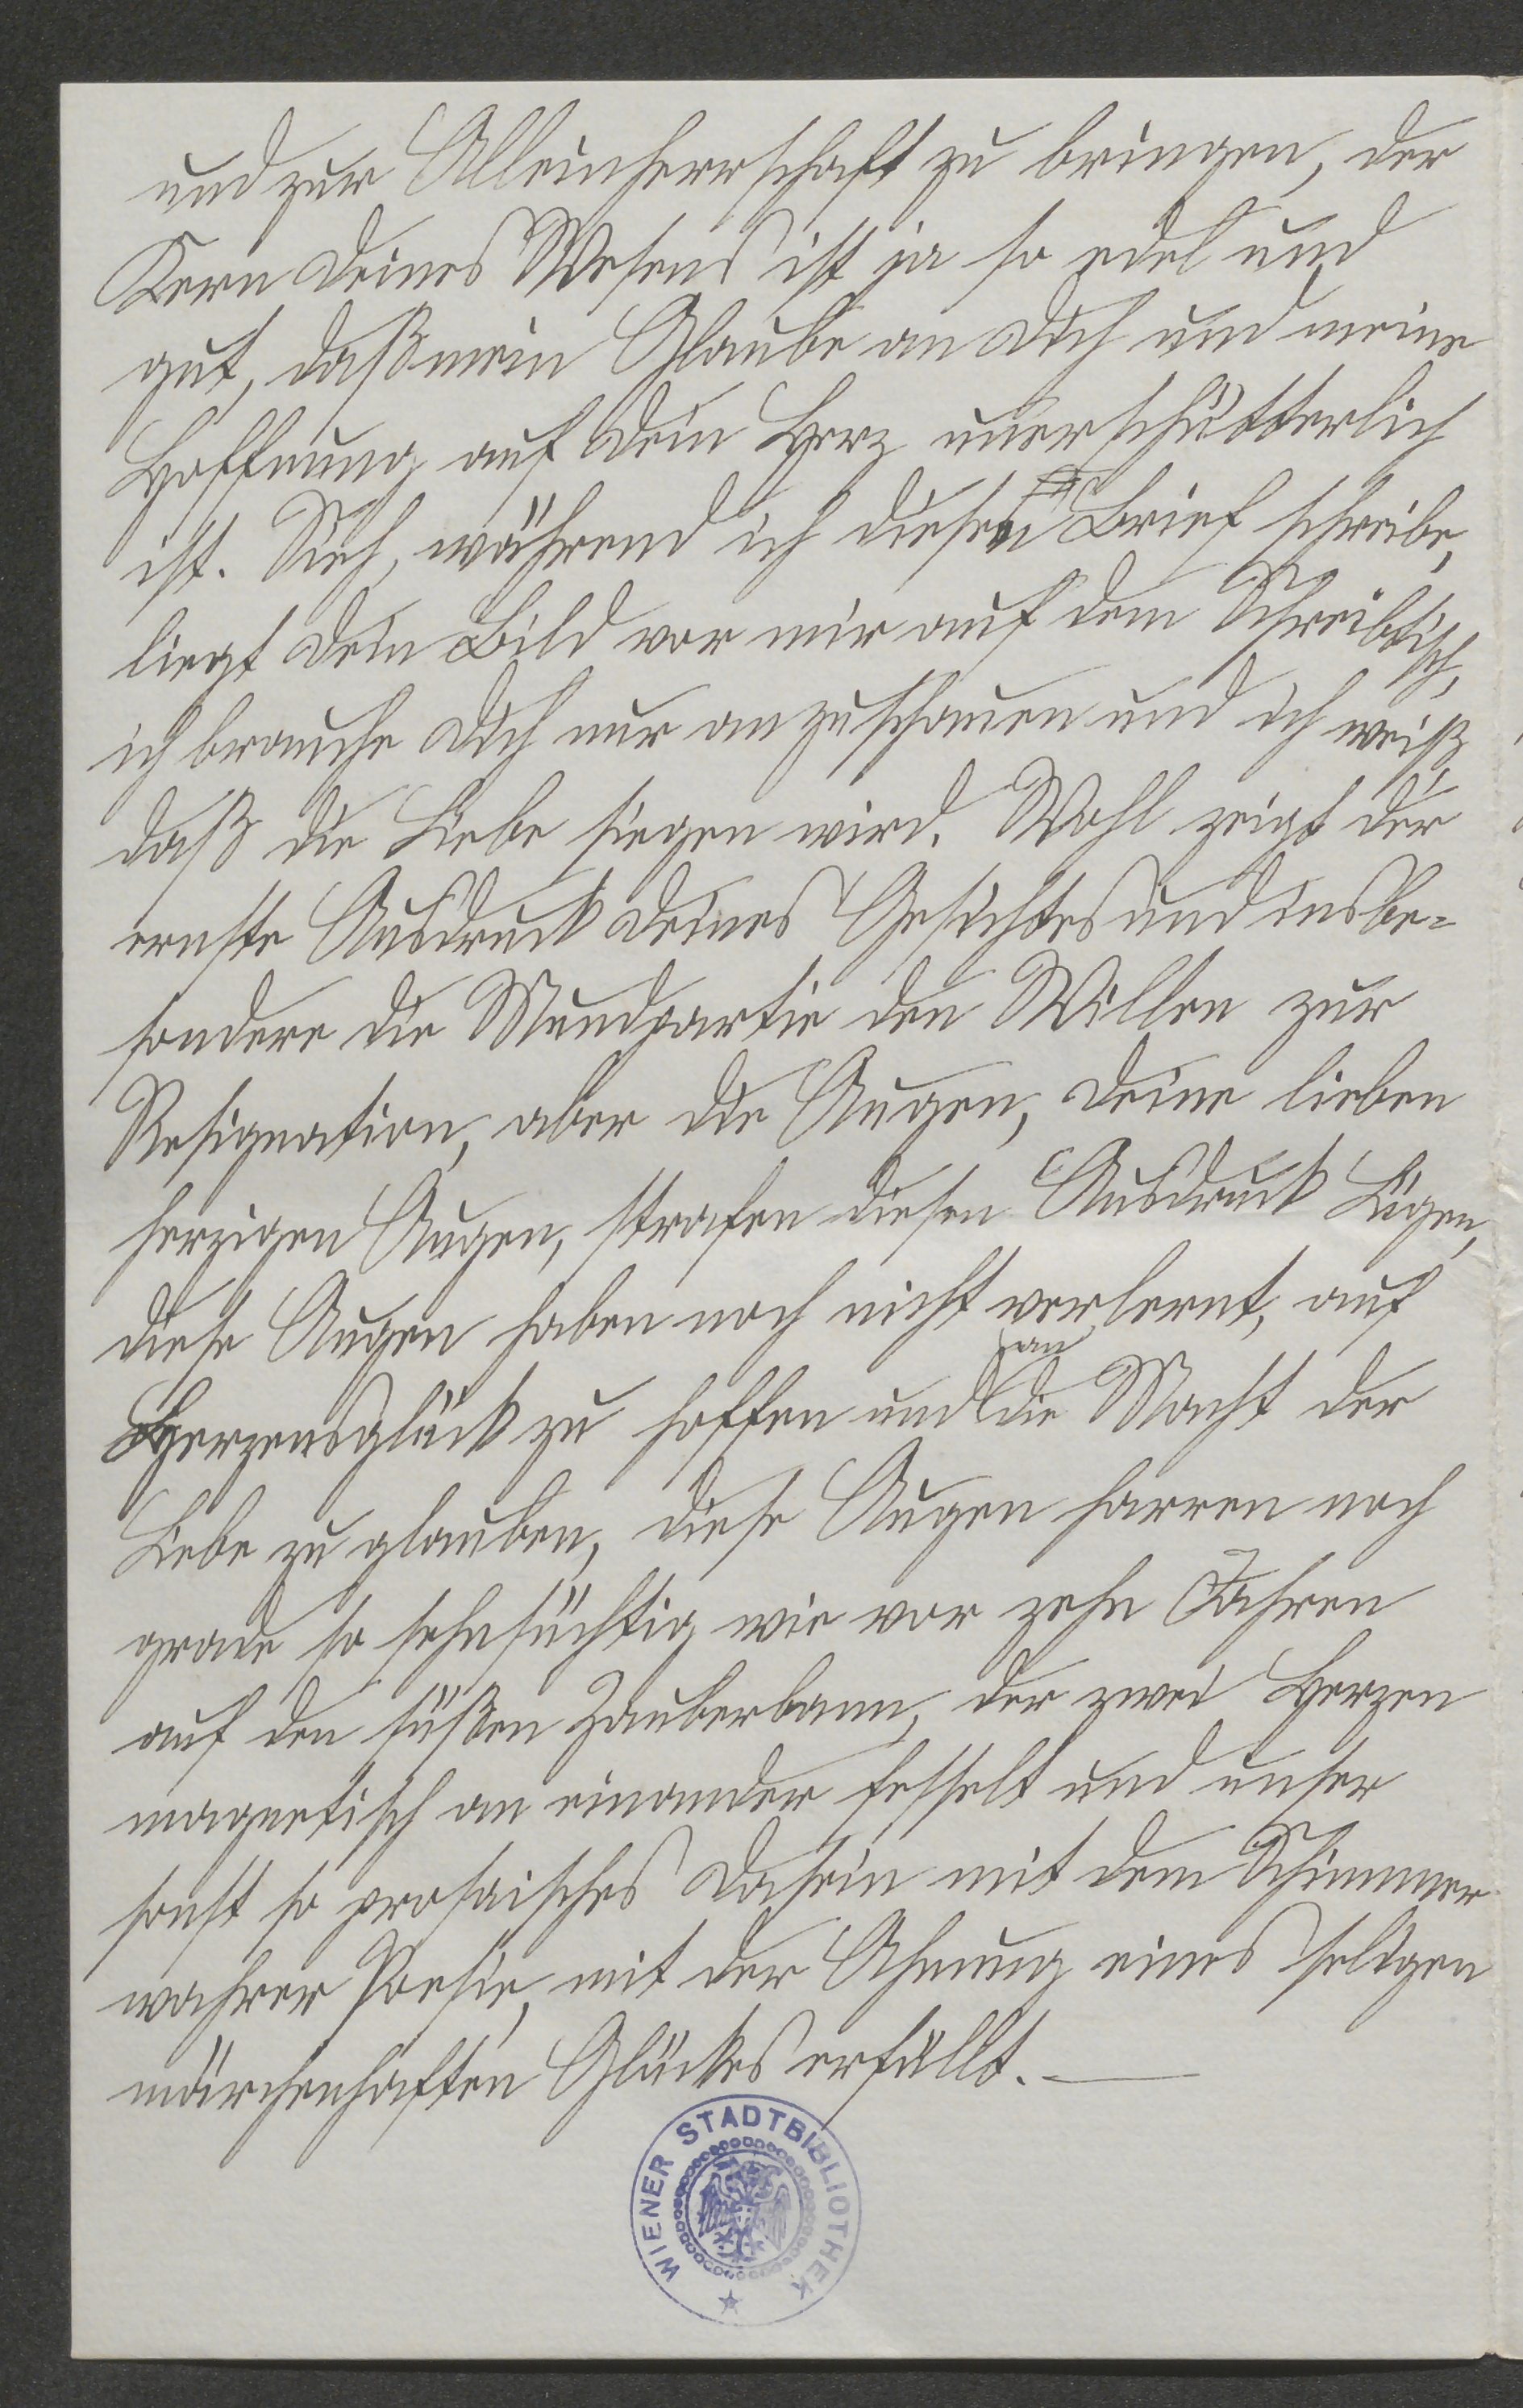 und zur Alleinherrschaft zu bringen, der
Kern Deines Wesens ist ja so edel und
gut, daß mein Glaube an Dich und meine
Hoffnung auf Dein Herz unerschütterlich
ist. Sieh, während ich diesen Brief schreibe,
liegt Dein Bild vor mir auf dem Schreibtisch,
ich brauche Dich nur anzuschauen und ich weiß,
daß die Liebe siegen wird. Wohl zeigt der
ernste Ausdruck Deines Gesichtes und insbe=
sondere die Mundpartie den Willen zur
Resignation, aber die Augen, Deine lieben
herzigen Augen, strafen diesen Ausdruck Lügen,
diese Augen haben noch nicht verlernt, auf
an
Herzensglück zu hoffen und die Macht der
Liebe zu glauben, diese Augen harren noch
grade so sehnsüchtig wie vor zehn Jahren
auf den süßen Zauberbann, der zwei Herzen
magnetisch an einander fesselt und unser
sonst so prosaisches Dasein mit dem Schimmer
wahrer Poesie, mit der Ahnung eines seligen
märchenhaften Glückes erfüllt. —
WIENER STADTBIBLIOTHEK